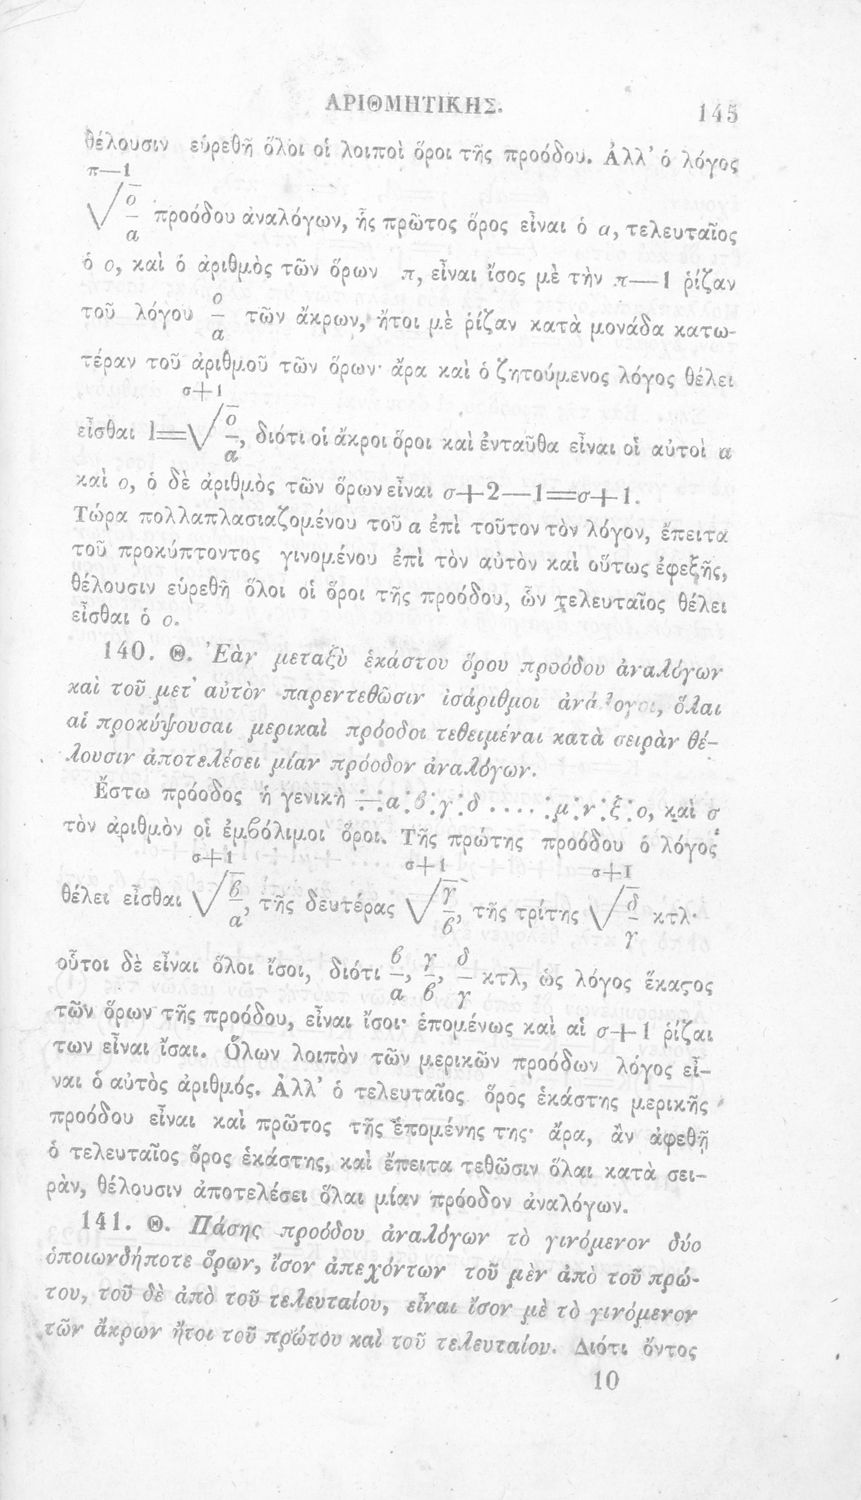 ΑΡΙΘΜΗΤΙΚΗΣ. 145
θέλουσιν εὑρεθῆ ὅλοι οἱ λοιποὶ ὅροι τῆς προόδου. Ἀλλ' ὁ λόγος
π—1
√ο/α προόδου ἀναλόγων, ἧς πρῶτος ὅρος εἶναι ὁ α, τελευταῖος
ὁ ο, καὶ ὁ ἀριθμὸς τῶν ὅρων π, εἶναι ἴσος μὲ τὴν π—1 ῥίζαν
τοῦ λόγου ο/α τῶν ἄκρων, ἤτοι μὲ ῥίζαν κατὰ μονάδα κατω-
τέραν τοῦ ἀριθμοῦ τῶν ὅρων· ἄρα καὶ ὁ ζητούμενος λόγος θέλει
σ+1
εἶσθαι λ=√ο/α, διότι οἱ ἄκροι ὅροι καὶ ἐνταῦθα εἶναι οἱ αὐτοὶ α
καὶ ο, ὁ δὲ ἀριθμὸς τῶν ὅρων εἶναι σ+2—1=σ+1.
Τώρα πολλαπλασιαζομένου τοῦ α ἐπὶ τοῦτον τὸν λόγον, ἔπειτα
τοῦ προκύπτοντος γινομένου ἐπὶ τὸν αὐτὸν καὶ οὕτως ἐφεξῆς,
θέλουσιν εὑρεθῆ ὅλοι οἱ ὅροι τῆς προόδου, ὧν τελευταῖος θέλει
εἶσθαι ὁ ο.
140. Θ. Ἐὰν μεταξὺ ἑκάστου ὅρου προόδου ἀναλόγων
καὶ τοῦ μετ' αὐτὸν παρεντεθῶσιν ἰσάριθμοι ἀνάλογοι, ὅλαι
αἱ προκύψουσαι μερικαὶ πρόοδοι τεθειμέναι κατὰ σειρὰν θέ-
λουσιν ἀποτελέσει μίαν πρόοδον ἀναλόγων.
Ἔστω πρόοδος ἡ γενικὴ ÷:α:β:γ:δ . . . . . :μ:ν:ξ:ο, καὶ σ
τὸν ἀριθμὸν οἱ ἐμβόλιμοι ὅροι. Τῆς πρώτης προόδου ὁ λόγος
σ+1 σ+1 σ+1
θέλει εἶσθαι √β/α, τῆς δευτέρας √γ/β, τῆς τρίτης √δ/γ κτλ·
οὗτοι δὲ εἶναι ὅλοι ἴσοι, διότι β/α, γ/β, δ/γ κτλ, ὡς λόγος ἕκαστος
τῶν ὅρων τῆς προόδου, εἶναι ἴσοι· ἑπομένως καὶ αἱ σ+1 ῥίζαι
των εἶναι ἴσαι. Ὅλων λοιπὸν τῶν μερικῶν προόδων λόγος εἶ-
ναι ὁ αὐτὸς ἀριθμός. Ἀλλ' ὁ τελευταῖος ὅρος ἑκάστης μερικῆς
προόδου εἶναι καὶ πρῶτος τῆς ἑπομένης της· ἄρα, ἂν ἀφεθῇ
ὁ τελευταῖος ὅρος ἑκάστης, καὶ ἔπειτα τεθῶσιν ὅλαι κατὰ σει-
ρὰν, θέλουσιν ἀποτελέσει ὅλαι μίαν πρόοδον ἀναλόγων.
141. Θ. Πάσης προόδου ἀναλόγων τὸ γινόμενον δύο
ὁποιωνδήποτε ὅρων, ἴσον ἀπεχόντων τοῦ μὲν ἀπὸ τοῦ πρώ-
του, τοῦ δὲ ἀπὸ τοῦ τελευταίου, εἶναι ἴσον μὲ τὸ γινόμενον
τῶν ἄκρων ἤτοι τοῦ πρώτου καὶ τοῦ τελευταίου. Διότι ὄντος
10